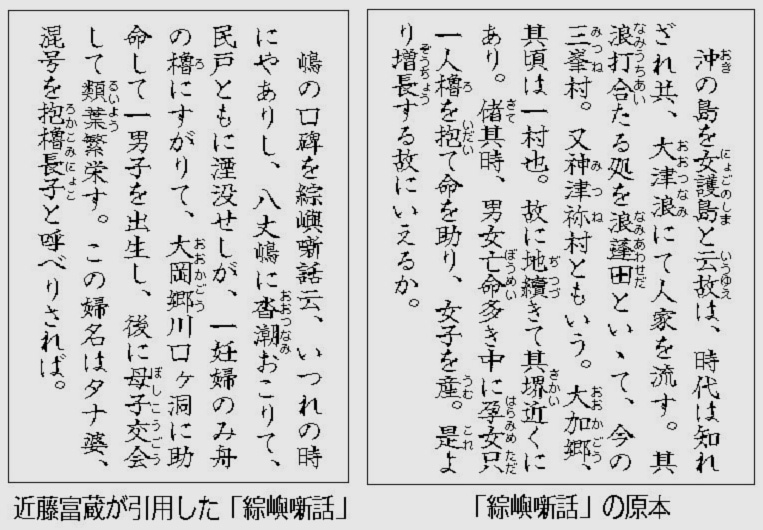 沖の島を女護島と云故は、時代は知れ
ざれ共、大津浪にて人家を流す。其
浪打合たる処を浪蓬田といゝて、今の
三峯村。又神津祢村ともいう。大加郷、
其頃は一村也。故に地續きて其堺近くに
あり。偖其時、男女亡命多き中に孕女只
一人櫓を抱て命を助り、女子を産。是よ
り増長する故にいえるか。
「綜嶼噺話」の原本
嶋の口碑を綜嶼噺話云、いつれの時
にやありし、八丈嶋に沓潮おこりて、
民戸ともに湮没せしが、一妊婦のみ舟
の櫓にすがりて、大岡郷川口ヶ洞に助
命して一男子を出生し、後に母子交会
して類葉繁栄す。この婦名はタナ婆、
混号を抱櫓長子と呼べりされば。
近藤富蔵が引用した「綜嶼噺話」